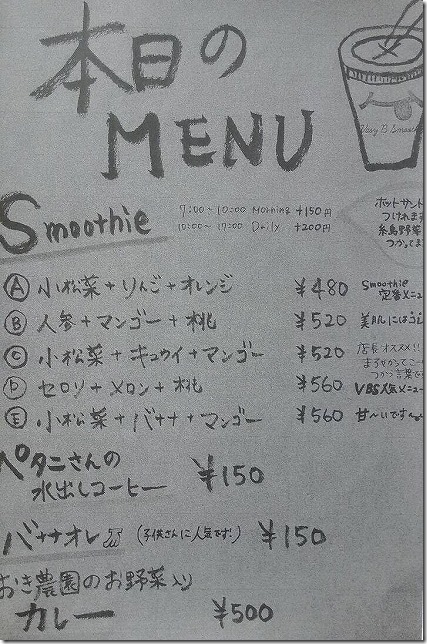 本日の
MENU
Smoothie
7:00~10:00 Morning +150円
10:00~17:00 Daily +200円
ホットサンド
つけれます
糸島野菜
つかってま
Ⓐ 小松菜+りんご+オレンジ ¥480 Smoothie
定番メニュ
Ⓑ 人参+マンゴー+桃 ¥520 美肌にはコレ
Ⓒ 小松菜+キュウイ+マンゴー ¥520 店長オススメ!!
Ⓓ セロリ+メロン+桃 ¥560 VBS人気メニュー
Ⓔ 小松菜+バナナ+マンゴー ¥560 甘~いです
ペタニさんの
水出しコーヒー ¥150
バナナオレ (子供さんに人気です!) ¥150
おき農園のお野菜入り
カレー ¥500